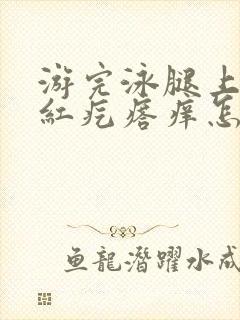 游完泳腿上
红疙瘩痒怎
鱼龍潛躍水成